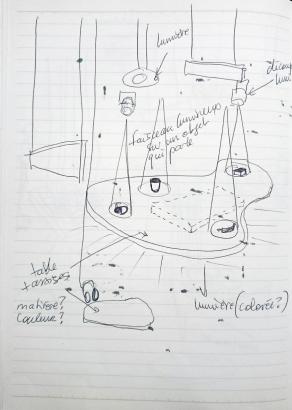 lumière
faisceau lumineux
sur un objet
qui parle
table
matière?
couleur?
lumière (colorée?)